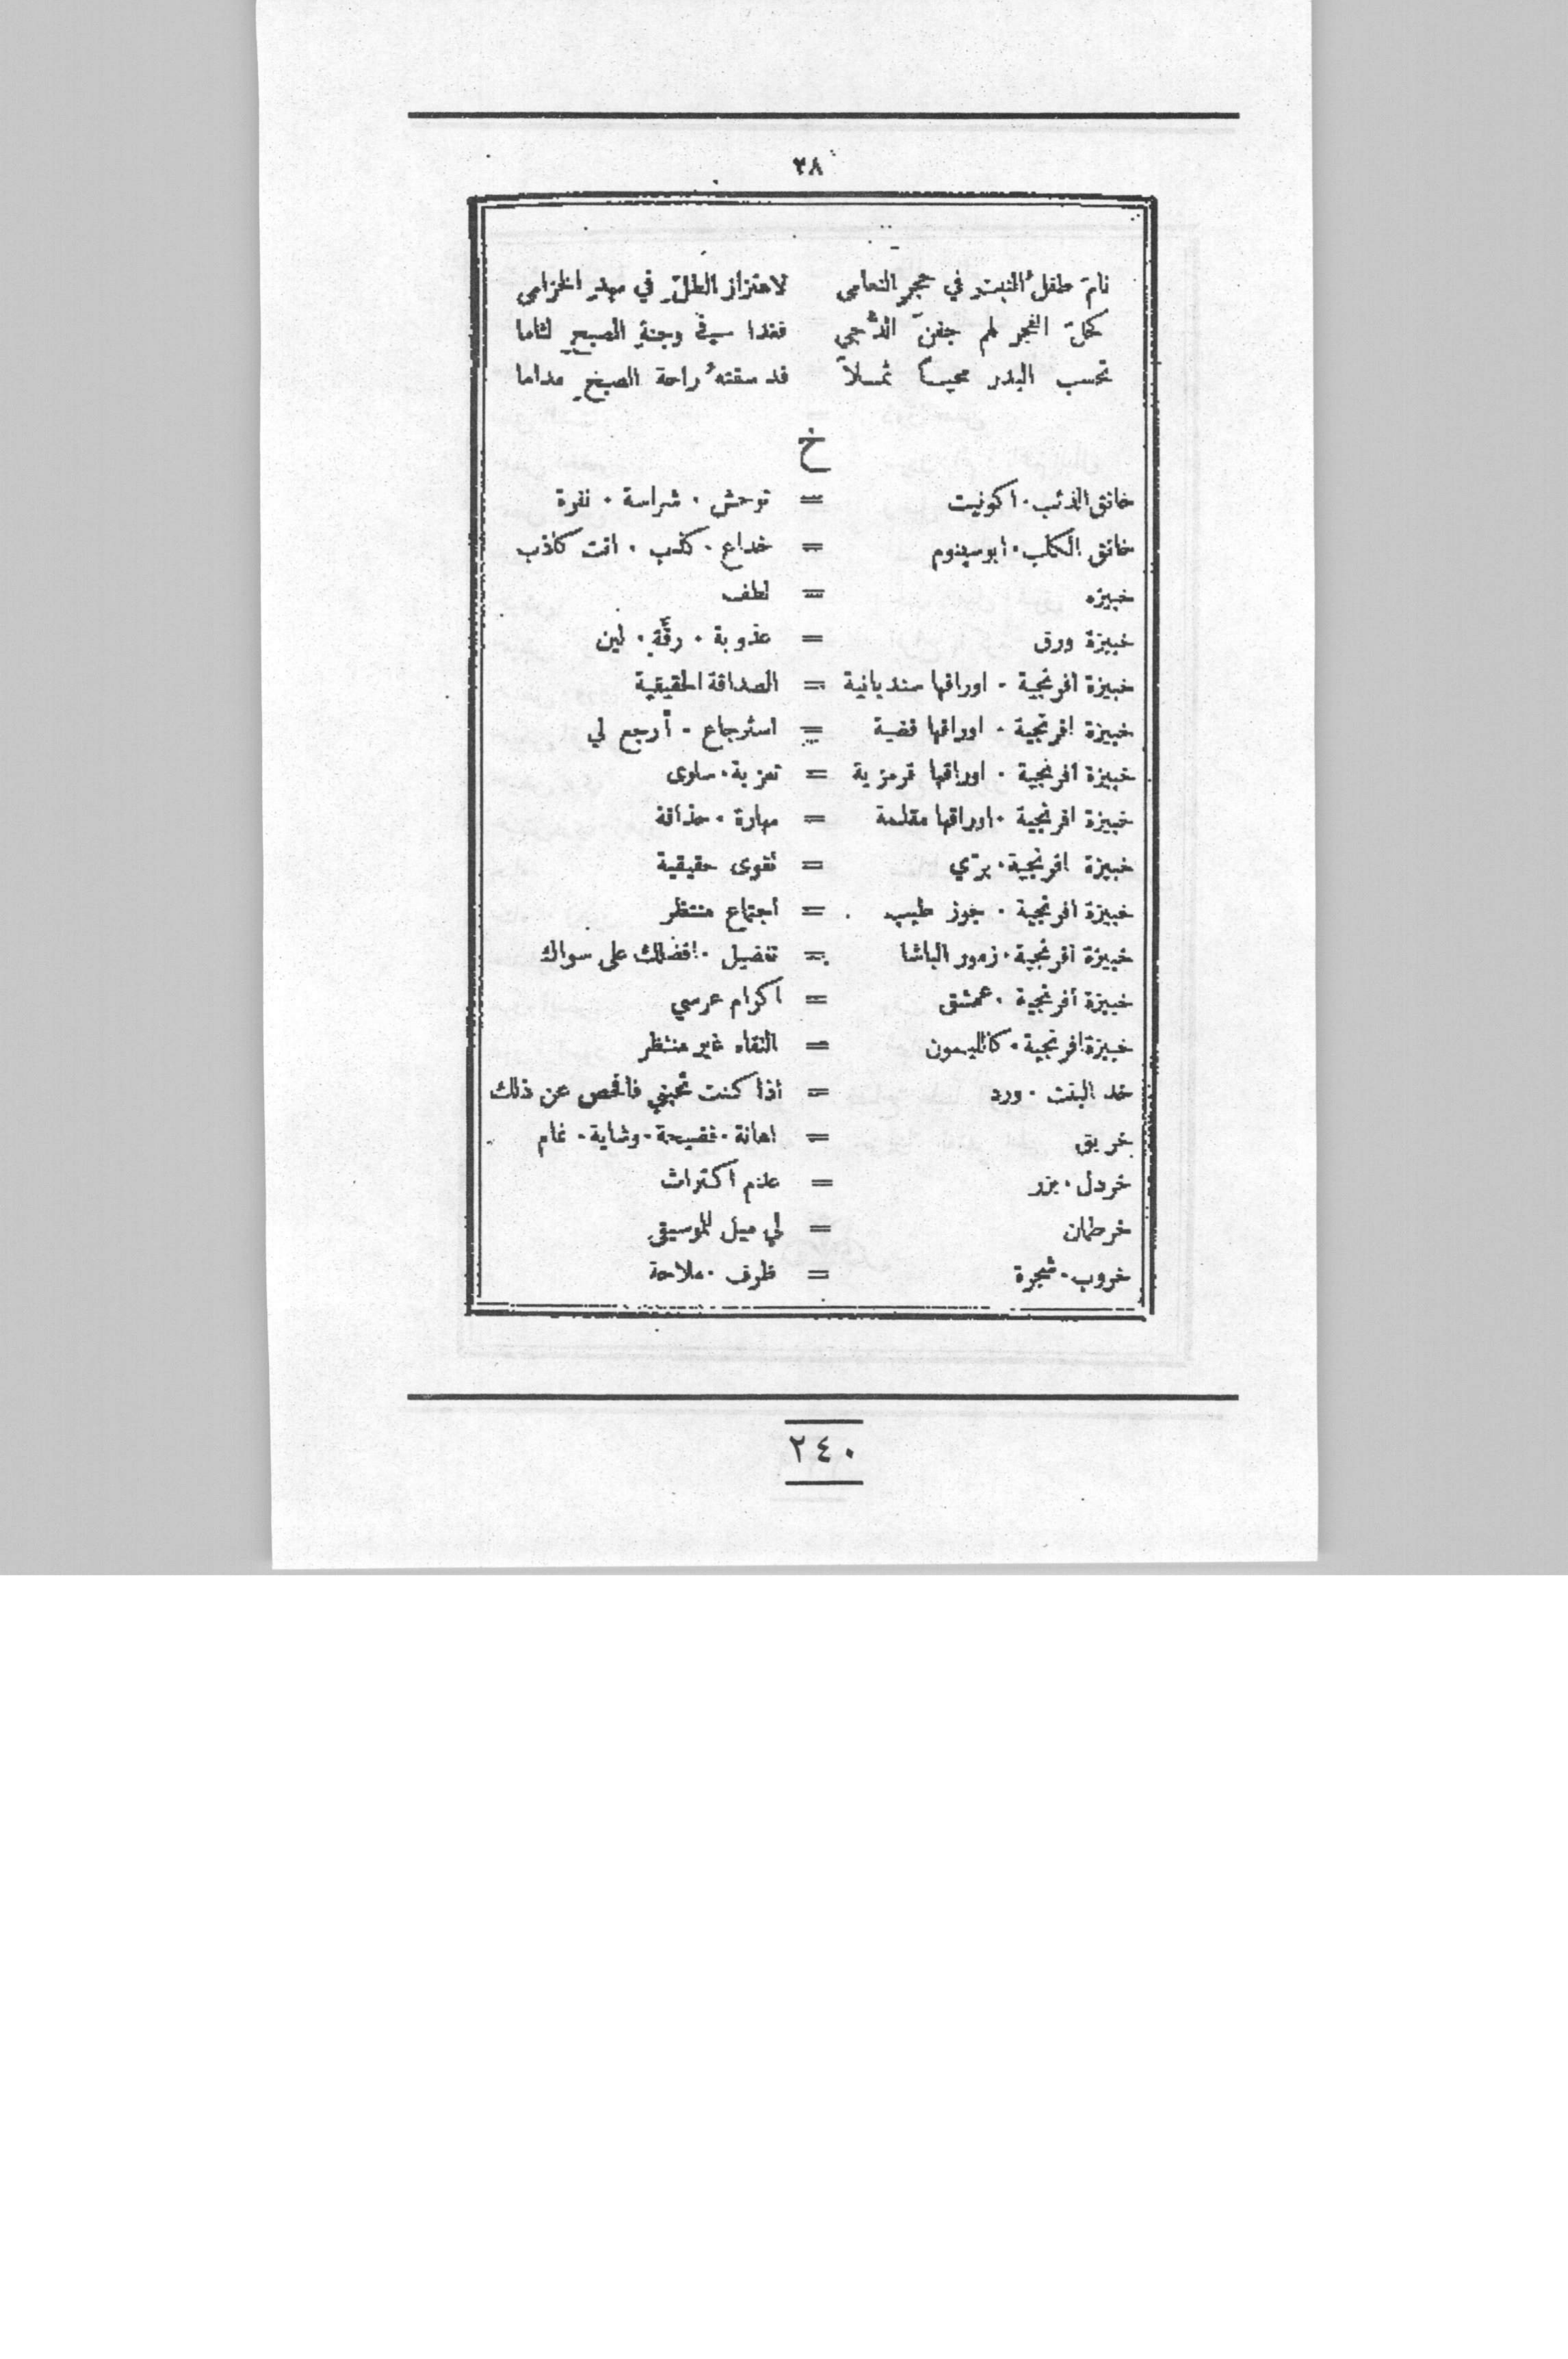 ٣٨
نام طفلُ النبتِ في حجرِ النعامى لاهتزاز الطلّ في مهدِ الخزامى
كحلَ الفجر لهم جفنَ الدُّجى فغدا في وجنةِ الصبحِ لثاما
تحسب البدر محيّا ثملاً قد سقتهُ راحة الصبح مداما
خ
خانق الذئب. اكونيت = توحش. شراسة. نفرة
خانق الكلب. ابوسينوم = خداع. كذب. انت كاذب
خبيزه = لطف
خبيزة ورق = عذوبة. رقَّة. لين
خبيزة افرنجية. اوراقها سنديانية = الصداقة الحقيقية
خبيزة افرنجية. اوراقها فضية = استرجاع. أرجع لي
خبيزة افرنجية. اوراقها قرمزية = تعزية. سلوى
خبيزة افرنجية. اوراقها مقلمة = مهارة. حذاقة
خبيزة افرنجية. برّي = تقوى حقيقية
خبيزة افرنجية. جوز طيب = اجتماع منتظر
خبيزة افرنجية. زهور الباشا = تفضيل. افضلك على سواك
خبيزة افرنجية. عمشق = اكرام عرسي
خبيزة افرنجية. كاتاليمون = التقاء غير منتظر
خد البنت. ورد = اذا كنت تحبني فافحص عن ذلك
خربق = اهانة. فضيحة. وشاية. غام
خردل. بزر = عدم اكتراث
خرطمان = لي ميل للموسيقى
خروب. شجرة = ظرف. ملاحة
٢٤٠